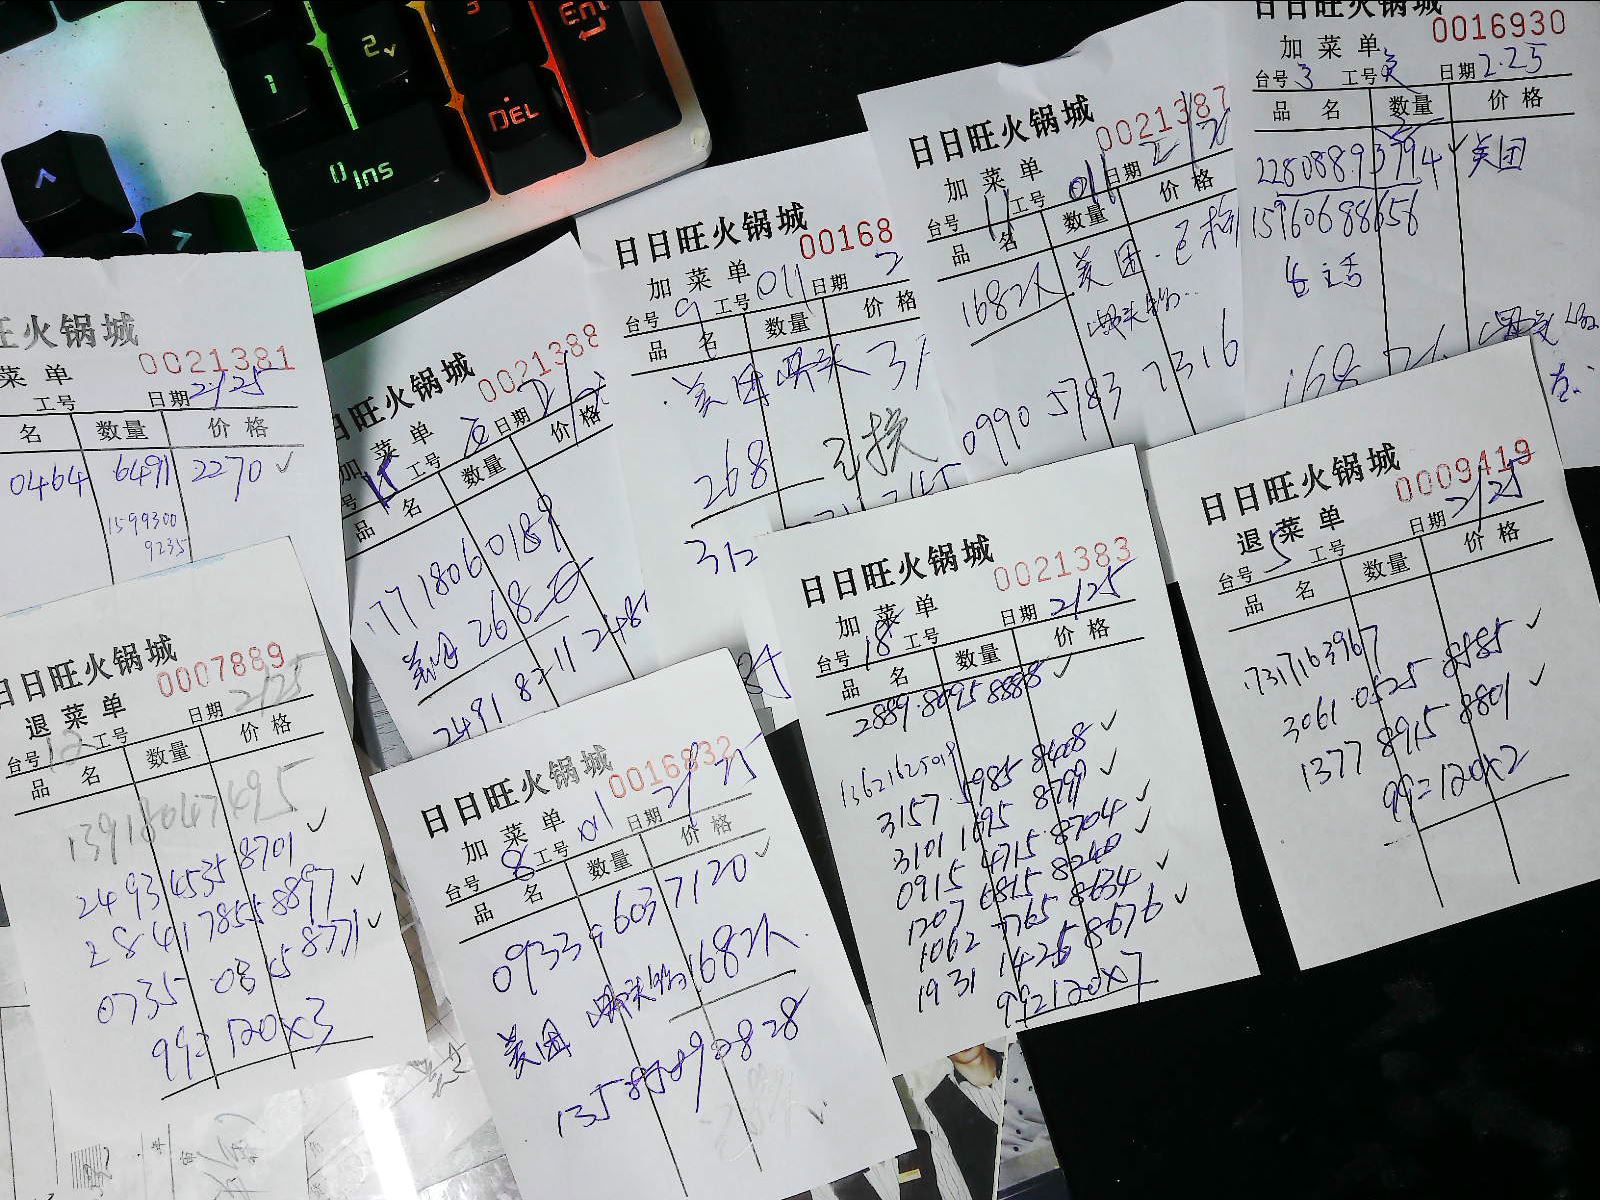 1
2
3
Ent
0 Ins
DEL
旺火锅城
0021381
菜单
工号 日期 2/25
名 数量 价格
0464 6491 2270 ✓
1599300
9235
日日旺火锅城
0021388
加菜单
号 工号 日期
品名 数量 价格
17718060189
美团 268
2491 8211 2481
日日旺火锅城
00168
加菜单
台号 9 工号 011 日期 2
品名 数量 价格
美团 31
268
312
日日旺火锅城
0021387
加菜单
台号 11 工号 011 日期
品名 数量 价格
1682人 美团
0990 5783 7316
日日旺火锅城
0016930
加菜单
台号 3 工号 日期 2.25
品名 数量 价格
2280889 3794 ✓ 美团
15960688656
日日旺火锅城
0007889
退菜单
台号 12 工号 日期 2/25
品名 数量 价格
13918047495
2493 4535 8701 ✓
2841 7855 8897 ✓
0735 0845 8771 ✓
99=120×3
日日旺火锅城
0016832
加菜单
台号 8 工号 011 日期 2/25
品名 数量 价格
0933 6037120 ✓
美团 1682人
日日旺火锅城
0021383
加菜单
台号 18 工号 日期 2/25
品名 数量 价格
2889 8695 8888 ✓
13621625019
3157 5985 8408 ✓
3101 1695 8799 ✓
0915 4715 8704 ✓
1207 6815 8240 ✓
1062 7765 8634 ✓
1931 1425 8676 ✓
99=120×7
日日旺火锅城
0009419
退菜单
台号 5 工号 日期 2/25
品名 数量 价格
17317163967
3061 0525 8585 ✓
1377 8915 8801 ✓
99=120×2